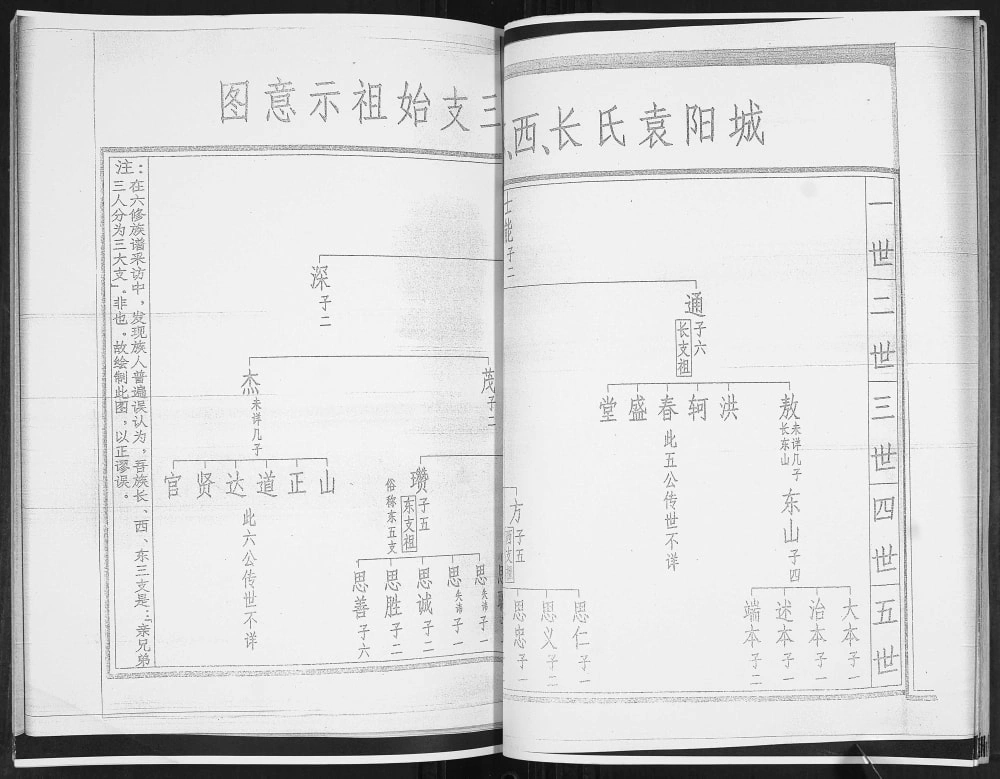 城阳袁氏长、西、
三支始祖示意图
一世
二世
三世
四世
五世
士能 子二
通 子六
长支祖
敖 未详几子
长东山
洪
轲
春
盛
堂
此五公传世不详
东山 子四
大本 子一
治本 子一
述本 子一
端本 子二
深 子二
茂 子二
杰 未详几子
方 子五
西支祖
瓒 子五
东支祖
俗称东五支
山
正
道
达
贤
官
此六公传世不详
思仁 子一
思义 子二
思忠 子一
思 失讳 子一
思 失讳 子一
思诚 子二
思胜 子二
思善 子六
注：在六修族谱采访中，发现族人普遍误认为，吾族长、西、东三支是：“亲兄弟
三人分为三大支”。非也。故绘制此图，以正谬误。